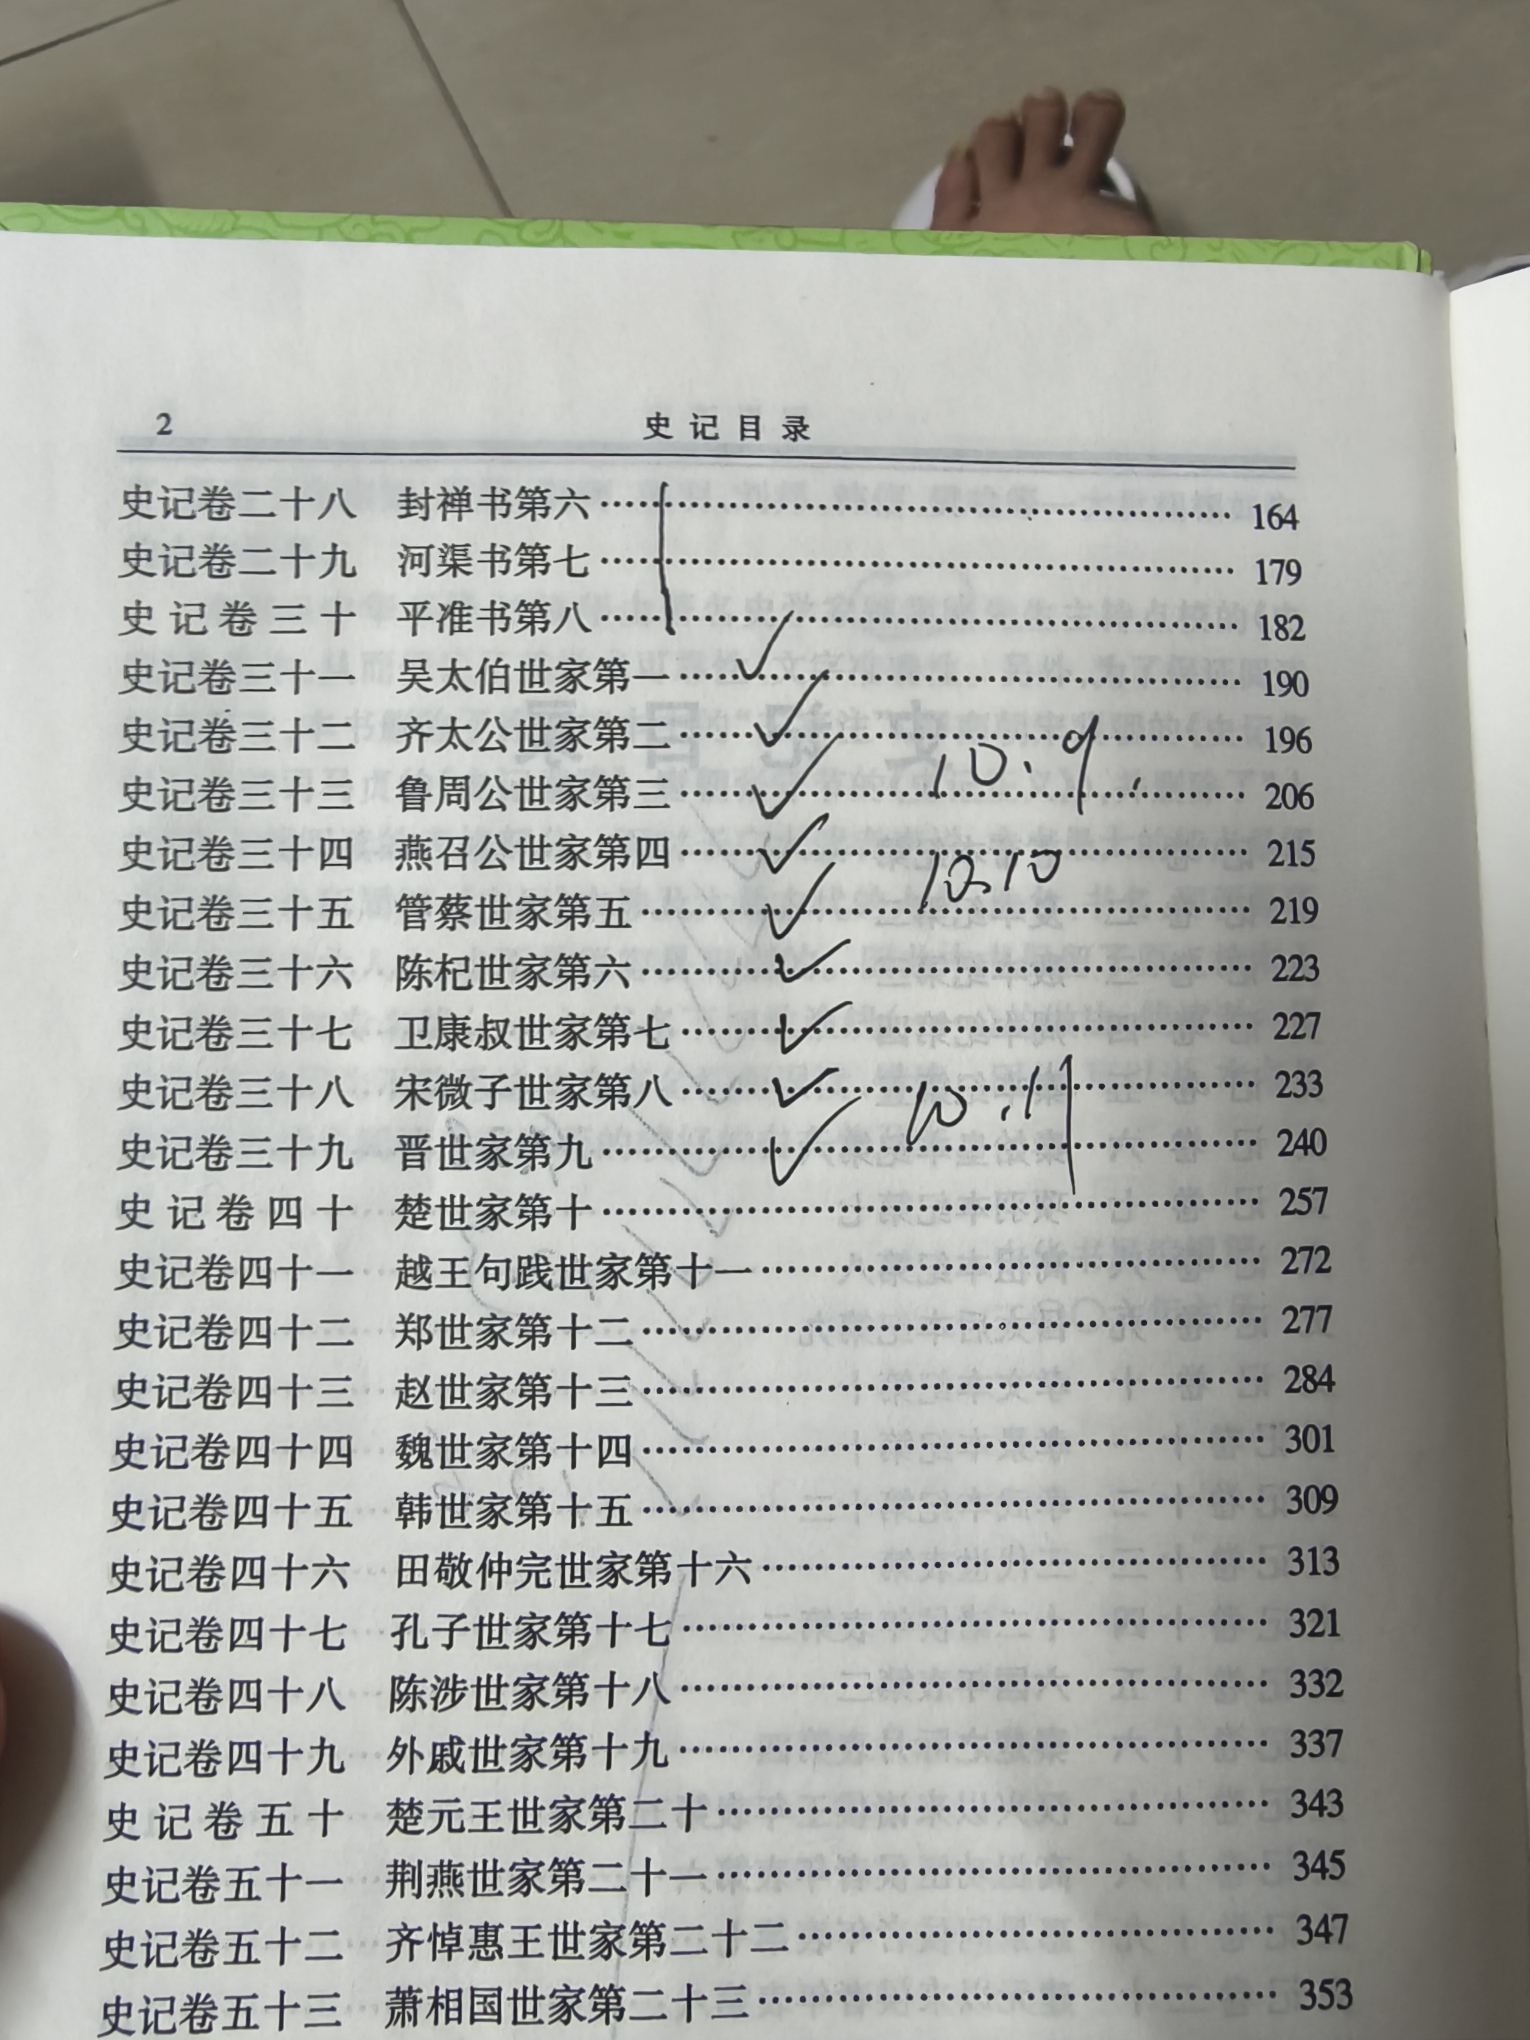 2 史记目录
史记卷二十八 封禅书第六 …… 164
史记卷二十九 河渠书第七 …… 179
史记卷三十 平准书第八 …… 182
史记卷三十一 吴太伯世家第一 …… 190
史记卷三十二 齐太公世家第二 …… 196
10.9.
史记卷三十三 鲁周公世家第三 …… 206
史记卷三十四 燕召公世家第四 …… 215
10.10
史记卷三十五 管蔡世家第五 …… 219
史记卷三十六 陈杞世家第六 …… 223
史记卷三十七 卫康叔世家第七 …… 227
史记卷三十八 宋微子世家第八 …… 233
10.11
史记卷三十九 晋世家第九 …… 240
史记卷四十 楚世家第十 …… 257
史记卷四十一 越王句践世家第十一 …… 272
史记卷四十二 郑世家第十二 …… 277
史记卷四十三 赵世家第十三 …… 284
史记卷四十四 魏世家第十四 …… 301
史记卷四十五 韩世家第十五 …… 309
史记卷四十六 田敬仲完世家第十六 …… 313
史记卷四十七 孔子世家第十七 …… 321
史记卷四十八 陈涉世家第十八 …… 332
史记卷四十九 外戚世家第十九 …… 337
史记卷五十 楚元王世家第二十 …… 343
史记卷五十一 荆燕世家第二十一 …… 345
史记卷五十二 齐悼惠王世家第二十二 …… 347
史记卷五十三 萧相国世家第二十三 …… 353